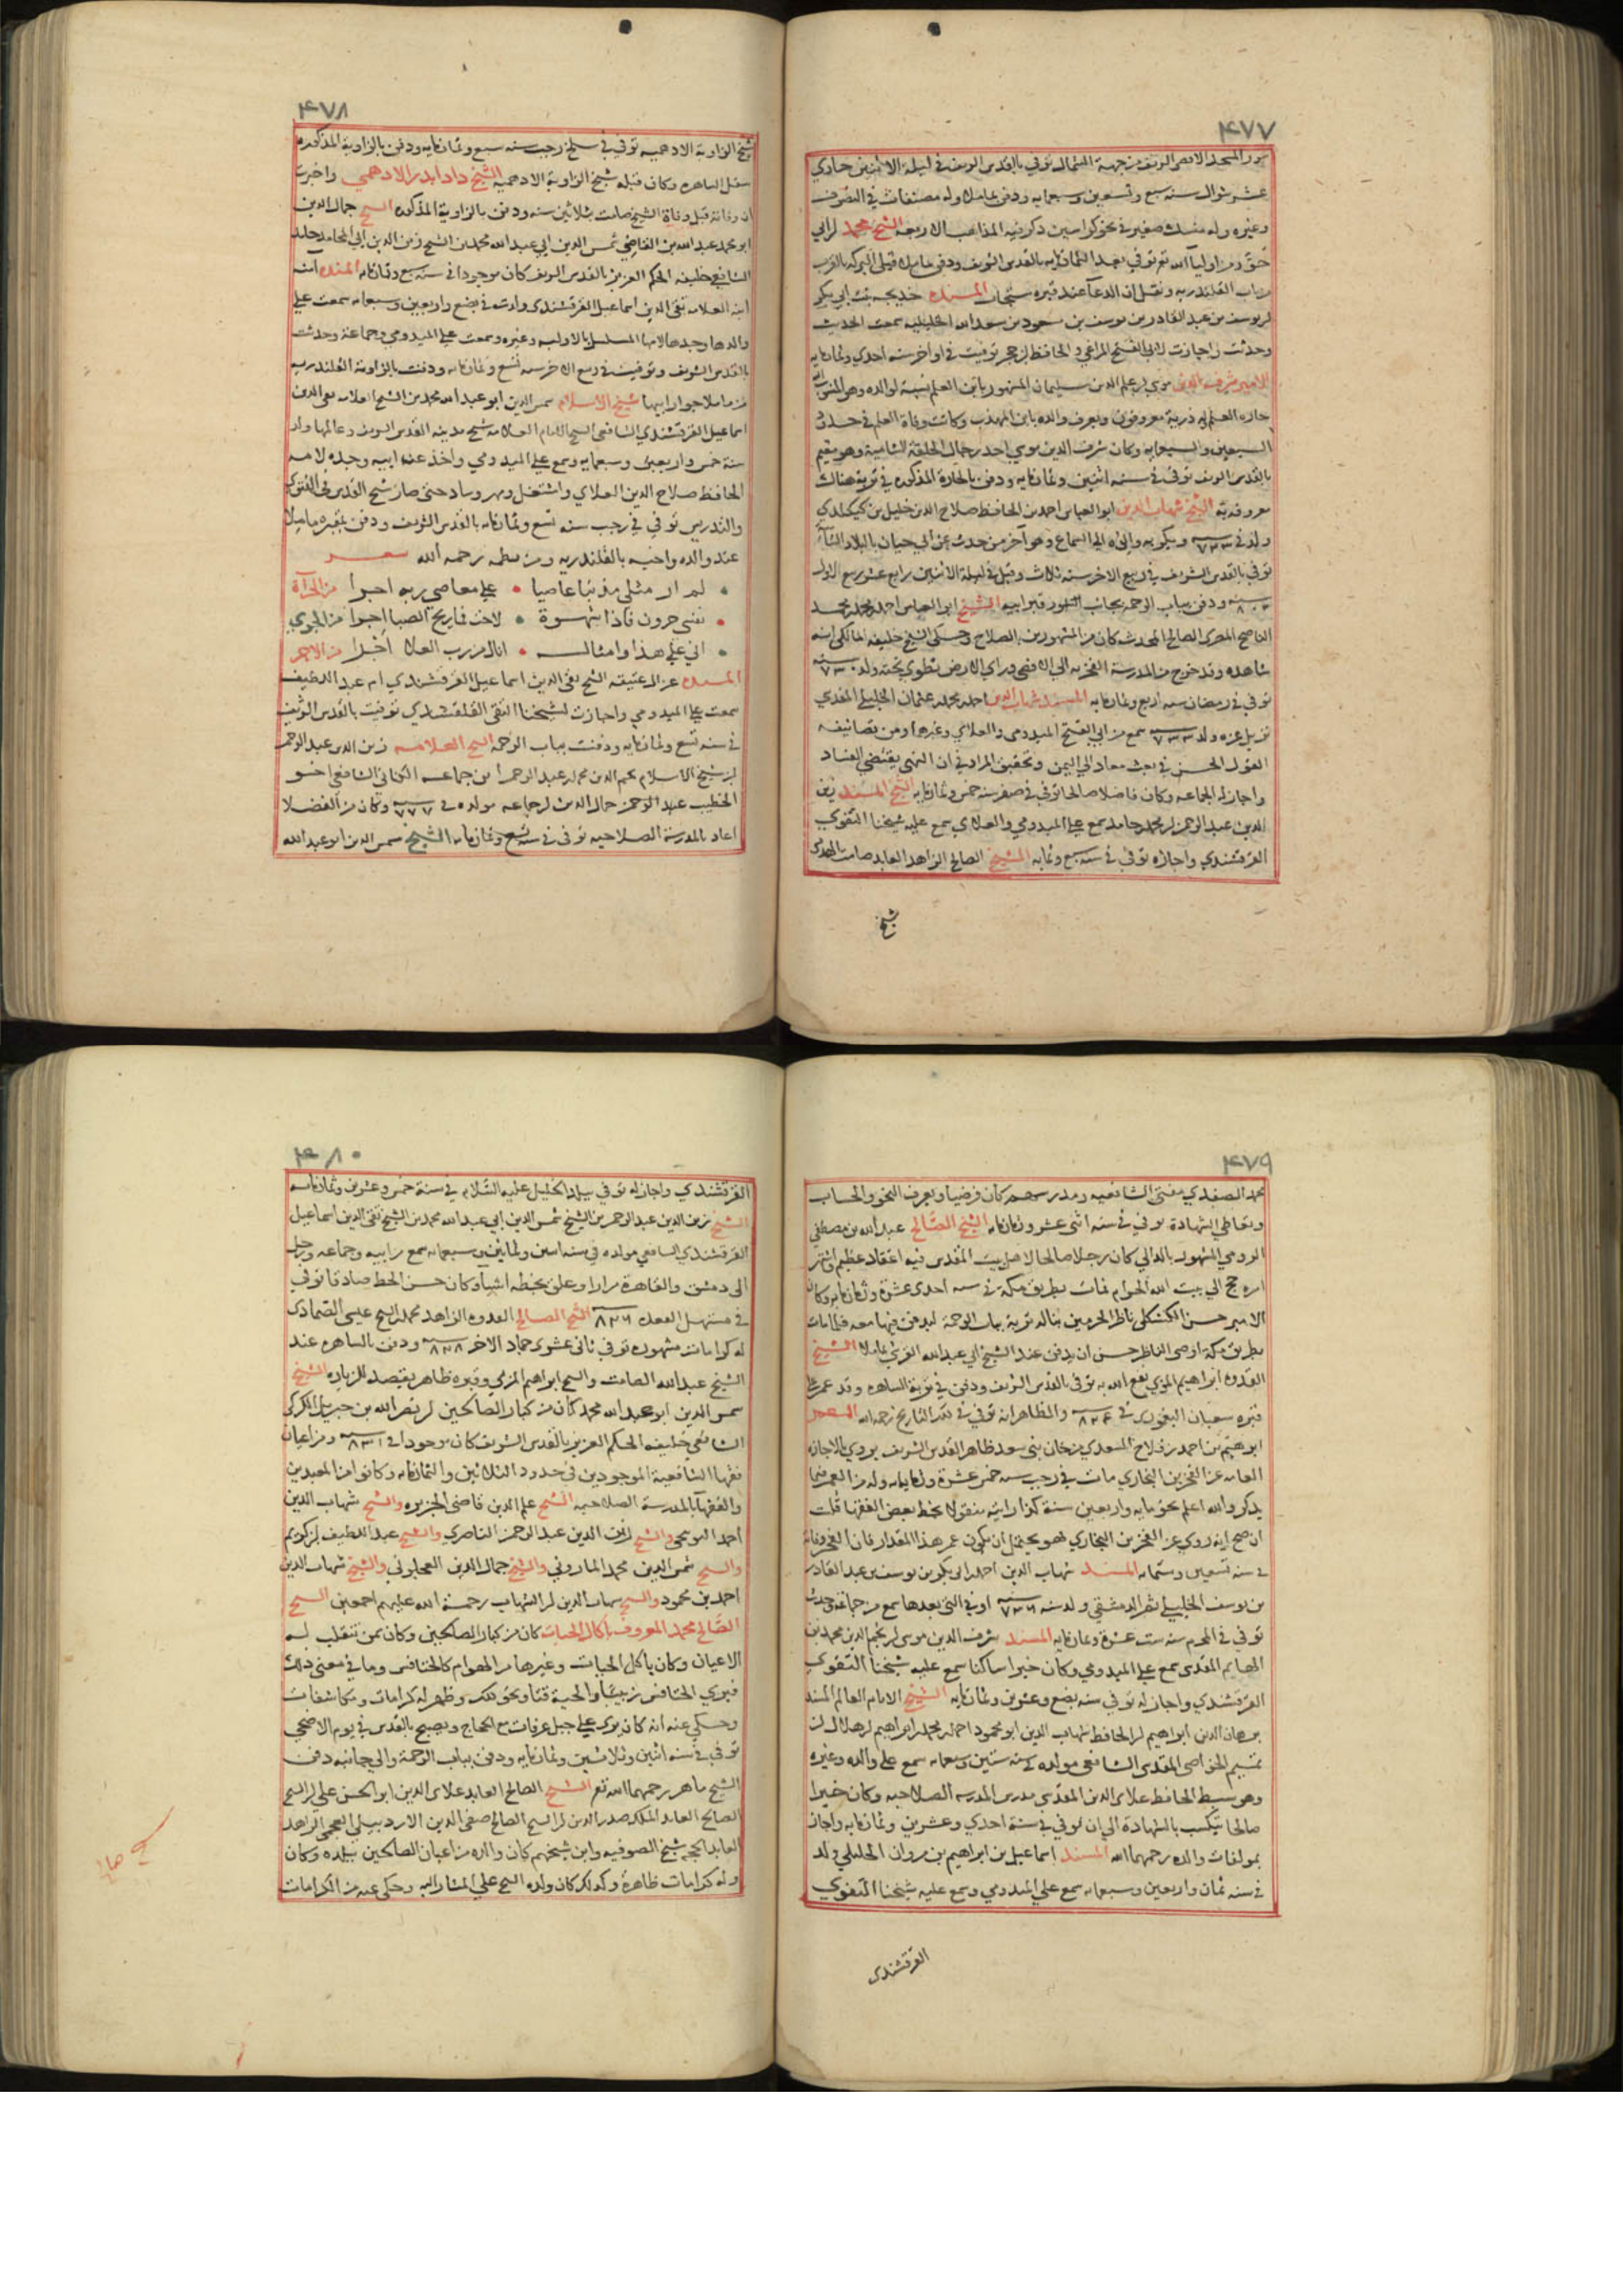 ٤٧٧
سور المسجد الاقصى الشريف من جهة الشمال توفي بالقدس الشريف في ليلة الاثنين حادي
عشر شوال سنة سبع وتسعين وسبعمايه ودفن بماملا وله مصنفات في التصوف
وغيره وله منسك صغير في نحو كراسين ذكر فيه المذاهب الاربعه الشيخ محمد
من اوليا الله تع توفي بعد الثمانمايه بالقدس الشريف ودفن بماملا قبلي البركه بالقرب
من باب القلندريه ونقل ان الدعا عند قبره مستجاب المسنده خديجه بنت ابي بكر
بن يوسف بن عبد القادر بن يوسف بن مسعود بن سعد الله الخليليه سمعت الحديث
وحدثت واجازت لابي الفتح المراغي والحافظ بن حجر توفيت في اواخر سنه احدي وثمانمايه
الامير شرف الدين موسي بن علم الدين سليمان المشهور بابن العلم نسبة لوالده وهو المنسوب اليه
حارة العلم له ذرية معروفون ويعرف والده بابن المهذب وكانت وفاة العلم في حدود
السبعين والسبعمايه وكان شرف الدين موسي احد رجال الحلقة الشاميه وهو مقيم
بالقدس الشريف توفي في سنه اثنين وثمانمايه ودفن بالحارة المذكوره في تربة هناك
معروفة به الشيخ شهاب الدين ابو العباس احمد بن الحافظ صلاح الدين خليل بن كيكلدي
ولد في ٧٣٣ وبكر به والده الي السماع وهو آخر من حدث عن ابي حيان بالبلاد الشاميه
توفي بالقدس الشريف في ربيع الاخر سنه ثلاث وقيل في ليلة الاثنين رابع عشر ربيع الاول
سنه ٨٠٣ ودفن بباب الرحمه بجانب السور قبر ابيه الشيخ ابو العباس احمد بن محمد بن محمد
الناصح المصري الصالح المحدث كان من المشهورين بالصلاح وحكي الشيخ خليفه المالكي انه
شاهده وقد خرج من المدرسة الفخريه الي الاقصي وراي الارض تطوي تحته ولد ٧٣٠
توفي في رمضان سنه اربع وثمانمايه المسند شهاب الدين احمد بن محمد بن عثمان الخليلي المقدسي
نزيل غزه ولد ٧٣٣ سمع من ابي الفتح الميدومي والعلاي وغيرهما ومن تصانيفه
القول الحسن في بعث معاد الي اليمن وتحقيق المراد في ان النهي يقتضي الفساد
واجاز له الجماعه وكان فاضلا صالحا توفي في صفر سنه خمس وثمانمايه الشيخ المسند زين
الدين عبد الرحمن بن محمد بن حامد سمع علي الميدومي والعلاي سمع عليه شيخنا التقوي
القرقشندي واجازه توفي في سنه سبع وثمايه الشيخ الصالح الزاهد العابد صامت
شيخ
٤٧٨
شيخ الزاوية الادهميه توفي في سلخ رجب سنه سبع وثمانمايه ودفن بالزاوية المذكوره
سفل الساهره وكان قبله شيخ الزاوية الادهميه الشيخ داد ابدر الادهمي واخبرت
ان وفاته قبل وفاة الشيخ صامت بثلاثين سنه ودفن بالزاوية المذكوره الشيخ جمال الدين
ابو محمد عبد الله بن القاضي شمس الدين ابي عبد الله محمد بن الشيخ زين الدين ابي المحامد حامد
الشافعي خليفه الحكم العزيز بالقدس الشريف كان موجودا في سنه سبع وثمانمايه المسنده امنه
ابنة العلامه تقي الدين اسماعيل القرقشندي ولدت في بضع واربعين وسبعمايه سمعت علي
والدها وجدها لامها المسلسل بالاوليه وغيره وسمعت علي الميدومي وجماعة وحدثت
بالقدس الشريف وتوفيت في ربيع الاخر سنه تسع وثمانمايه ودفنت بالزاوية القلندريه
من ماملا جوار ابيها شيخ الاسلام شمس الدين ابو عبد الله محمد بن الشيخ العلامه تقي الدين
اسماعيل القرقشندي الشافعي الشيخ الامام العلامه شيخ مدينه القدس الشريف وعالمها ولد
سنة خمس واربعين وسبعمايه وسمع علي الميدومي واخذ عن ابيه وجده لامه
الحافظ صلاح الدين العلاي واشتغل ومهر وساد حتي صار شيخ القدس في الفتوي
والتدريس توفي في رجب سنه تسع وثمانمايه بالقدس الشريف ودفن بمقبرة ماملا
عند والده واخيه بالقلندريه ومن نظمه رحمه الله شعر
لم ار مثلي مذنبا عاصيا • علي معاصي ربه اجرا من الجراة
نفسي حرون فاذا شهوة • لاحت فا ريح الصبا اجرا من الجري
اني علي هذا وامثاله • انال من رب العلا اجرا من الاجر
المسنده غزال عتيقه الشيخ تقي الدين اسماعيل القرقشندي ام عبد اللطيف
سمعت علي الميدومي واجازت لشيخنا التقي القلقشندي توفيت بالقدس الشريف
في سنه تسع وثمانمايه ودفنت بباب الرحمه الشيخ العلامه زين الدين عبد الرحمن
بن شيخ الاسلام نجم الدين محمد بن عبد الرحمن بن جماعه الكناني الشافعي اخو
الخطيب عبد الرحمن جمال الدين بن جماعه مولده في ٧٧٧ وكان من الفضلا
اعاد بالمدرسة الصلاحيه توفي في سنه تسع وثمانمايه الشيخ شمس الدين ابو عبد الله
٤٧٩
محمد الصفدي مفتي الشافعيه ومدرسهم كان فرضيا ويعرف النحو والحساب
وتعاطي الشهادة توفي في سنه اثني عشر وثمانمايه الشيخ الصالح عبد الله بن مصطفي
الرومي المشهور بالدالي كان رجلا صالحا لاهل بيت المقدس فيه اعتقاد عظيم واشتهر
امره حج الي بيت الله الحرام فمات بطريق مكة في سنه احدي عشرة وثمانمايه وكان
الامير حسن الكشكلي ناظر الحرمين بنا له تربة بباب الرحمة ليدفن فيها معه فلما مات
بطريق مكة اوصي الناظر حسن ان يدفن عند الشيخ ابي عبد الله القرشي بماملا الشيخ
القدوه ابراهيم الموري نفع الله به توفي بالقدس الشريف ودفن في تربة الساهره وقد عمر علي
قبره شعبان اليغموري في ٨٢٤ والظاهر انه توفي في هذا التاريخ رحمه الله المعمر
ابراهيم بن احمد بن فلاح السعدي من خان بني سعد ظاهر القدس الشريف يروي بالاجازه
العامه عن الفخر بن البخاري مات في رجب سنه خمس عشرة وثمانمايه وله من العمر فيما
يذكر والله اعلم نحو مايه واربعين سنة كذا رايته منقولا بخط بعض الفقها قلت
ان صح انه روي عن الفخر بن البخاري فهو يحتمل ان يكون عمر هذا المقدار فان الفخر وفاته
في سنه تسعين وستمايه المسند شهاب الدين احمد بن ابي بكر بن يوسف بن عبد القادر
بن يوسف الخليلي ثم الدمشقي ولد سنه ٧٣٦ او في التي بعدها سمع من جماعة وحدث
توفي في المحرم سنه ست عشرة وثمانمايه المسند شرف الدين موسي بن نجم الدين محمد بن
الهايم المقدسي سمع علي الميدومي وكان خيرا ساكنا سمع عليه شيخنا التقوي
القرقشندي واجاز له توفي سنه بضع وعشرين وثمانمايه الشيخ الامام العالم المسند
برهان الدين ابراهيم بن الحافظ شهاب الدين ابو محمود احمد بن محمد بن ابراهيم بن هلال بن
تميم الخواصي المقدسي الشافعي مولده في سنه ستين وسبعمايه سمع علي والده وغيره
وهو سبط الحافظ علاي الدين المقدسي مدرس المدرسه الصلاحيه وكان خيرا
صالحا يتكسب بالشهادة الي ان توفي في سنة احدي وعشرين وثمانمايه واجاز
بمولفات والده رحمهما الله المسند اسماعيل بن ابراهيم بن مروان الخليلي ولد
في سنه ثمان واربعين وسبعمايه سمع علي الميدومي وسمع عليه شيخنا التقوي
القرقشندي
٤٨٠
القرقشندي واجاز له توفي ببلد الخليل عليه السلام في سنة خمس وعشرين وثمانمايه
الشيخ زين الدين عبد الرحمن بن الشيخ شمس الدين ابي عبد الله محمد بن الشيخ تقي الدين اسماعيل
القرقشندي الشافعي مولده في سنه اثنين وثمانين وسبعمايه سمع من ابيه وجماعه ورحل
الي دمشق والقاهرة مرارا وعلق بخطه اشيا وكان حسن الخط صادقا توفي
في مستهل القعده ٨٢٦ الشيخ الصالح القدوه الزاهد محمد بن الشيخ عيسي الصمادي
له كرامات مشهوره توفي ثاني عشري جماد الاخر ٨٢٨ ودفن بالساهره عند
الشيخ عبد الله الصامت والشيخ ابراهيم المزي وقبره ظاهر يقصد للزياره الشيخ
شمس الدين ابو عبد الله محمد كان من كبار الصالحين بن نصر الله بن جبريل الكركي
الشافعي خليفه الحكم العزيز بالقدس الشريف كان موجودا في ٨٣١ ومن اعيان
فقها الشافعية الموجودين في حدود الثلاثين والثمانمايه وكانوا من المعيدين
والفقها بالمدرسة الصلاحيه الشيخ علم الدين قاضي الجزيره والشيخ شهاب الدين
احمد والشيخ زين الدين عبد الرحمن الناصري والشيخ عبد اللطيف بن كريم
والشيخ شمس الدين محمد الماروني والشيخ جمال الدين العجلوني والشيخ شهاب الدين
احمد بن محمود والشيخ شهاب الدين بن الشهاب رحمة الله عليهم اجمعين الشيخ
الصالح محمد المعروف باكال الحيات كان من كبار الصالحين وكان ممن تنقلب له
الاعيان وكان ياكل الحيات وغيرها من الهوام كالخنافس وما في معني ذلك
فيري الخنافس زبيبا والحية قثا ونحو ذلك وظهر له كرامات ومكاشفات
وحكي عنه انه كان يري علي جبل عرفات مع الحجاج ويصبح بالقدس في يوم الاضحي
توفي في سنه اثنين وثلاثين وثمانمايه ودفن بباب الرحمة والي جانبه دفن
الشيخ ماهر رحمهما الله تع الشيخ الصالح العابد علاي الدين ابو الحسن علي بن الشيخ
الصالح العابد المسلك صدر الدين بن الشيخ الصالح صفي الدين الاردبيلي العجمي الزاهد
العابد الحجه شيخ الصوفيه وابن شيخهم كان والده من اعيان الصالحين ببلده وكان
وله كرامات ظاهرة وكذلك كان ولده الشيخ علي المشار اليه وحكي عنه من الكرامات